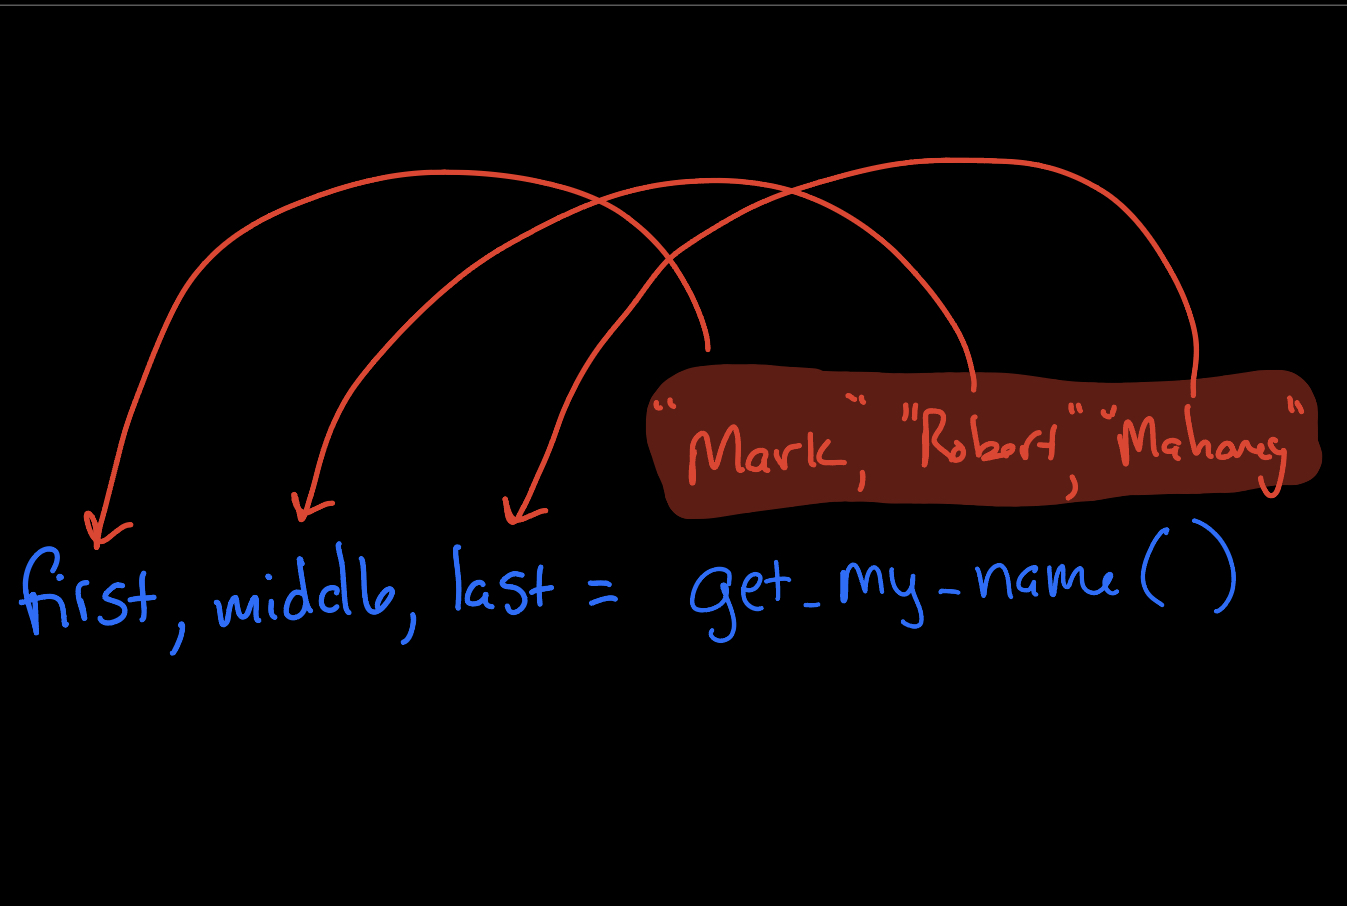 "Mark", "Robert", "Mahoney"
first, middle, last = get_my_name()